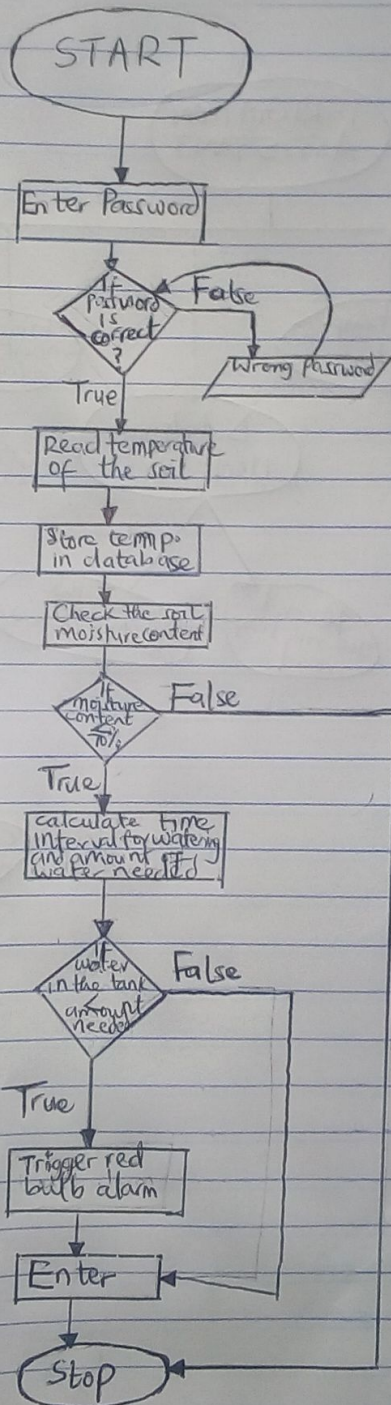 START
Enter Password
If
password
is
correct
?
False
Wrong Password
True
Read temperature
of the soil
Store temp.
in database
Check the soil
moisture content
If
moisture
content
False
True
calculate time
interval for watering
and amount of
water needed
If
water
in the tank
<
amount
needed
False
True
Trigger red
bulb alarm
Enter
Stop